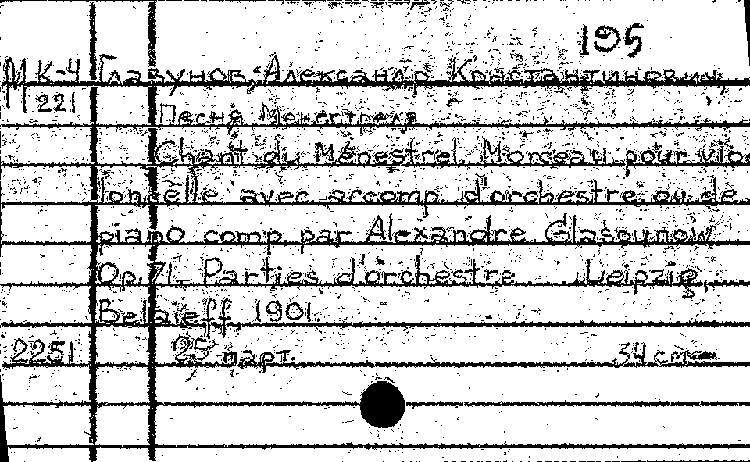 195
МК-4 Глазунов, Александр Константинович,
221 Песня Менестреля
Chant du Ménestrel. Morceau pour vio-
loncelle avec accomp. d'orchestre ou de
piano comp. par Alexandre Glasounow.
Op. 71. Parties d'orchestre Leipzig,
Belaieff, 1901.
2251 25 парт. 34 см